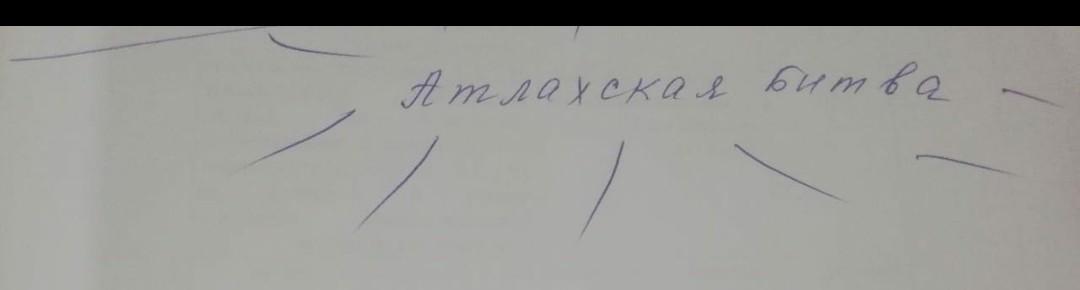 Атлахская битва